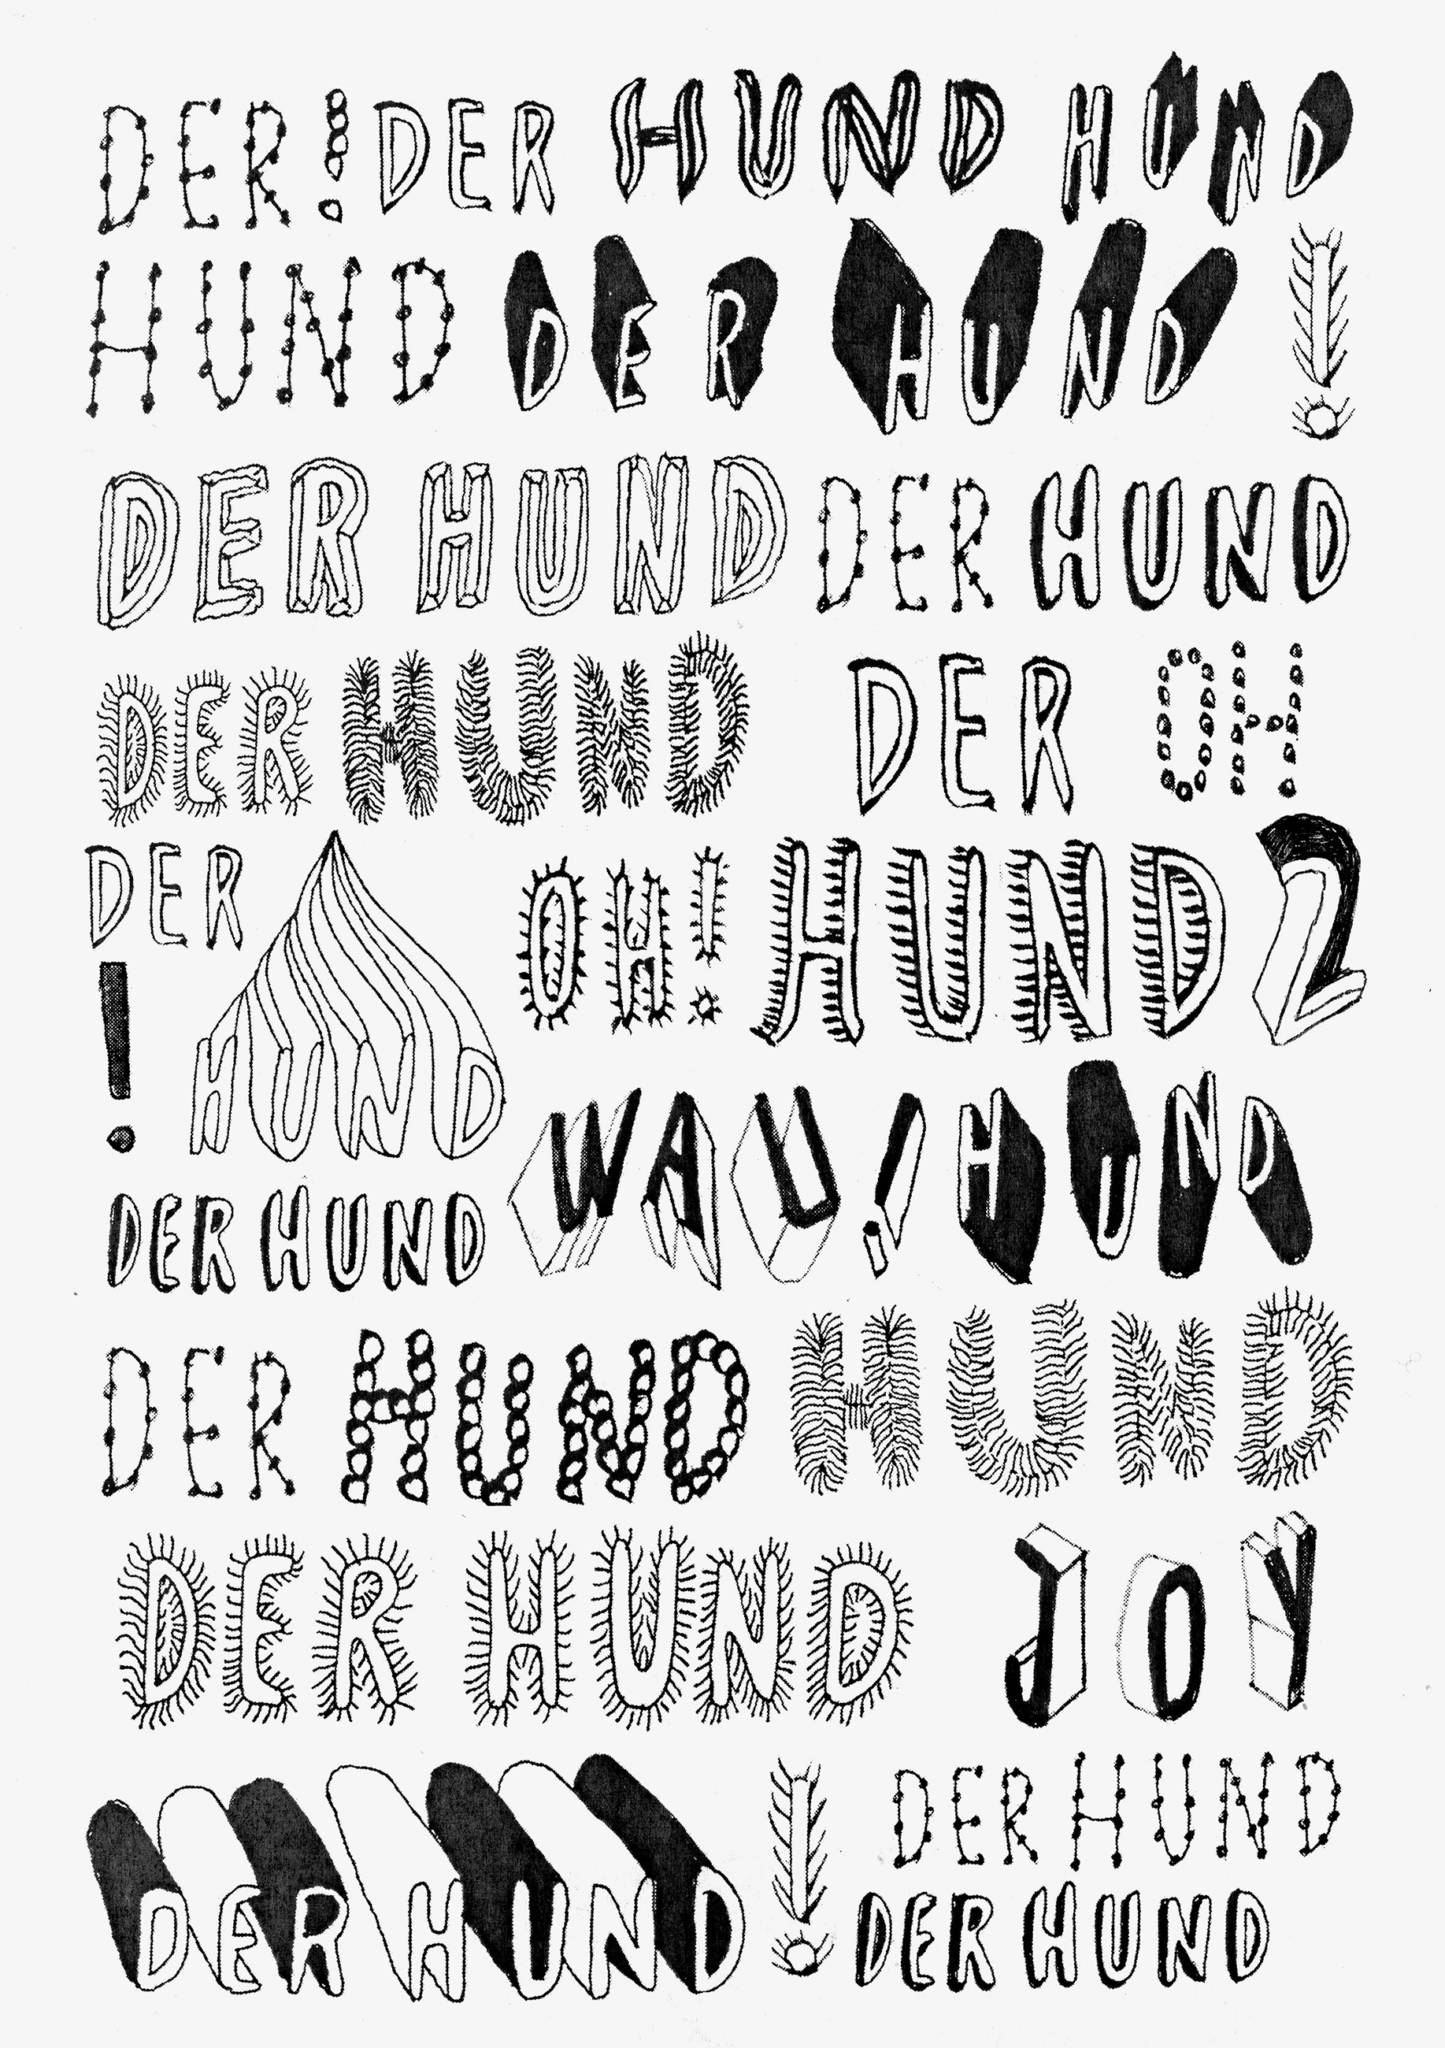 DER! DER HUND HUND
HUND DER HUND !
DER HUND DER HUND
DER HUND DER OH
DER OH! HUND 2
! HUND WAU! HUND
DER HUND
DER HUND HUND
DER HUND JOY
DER HUND ! DER HUND
DER HUND